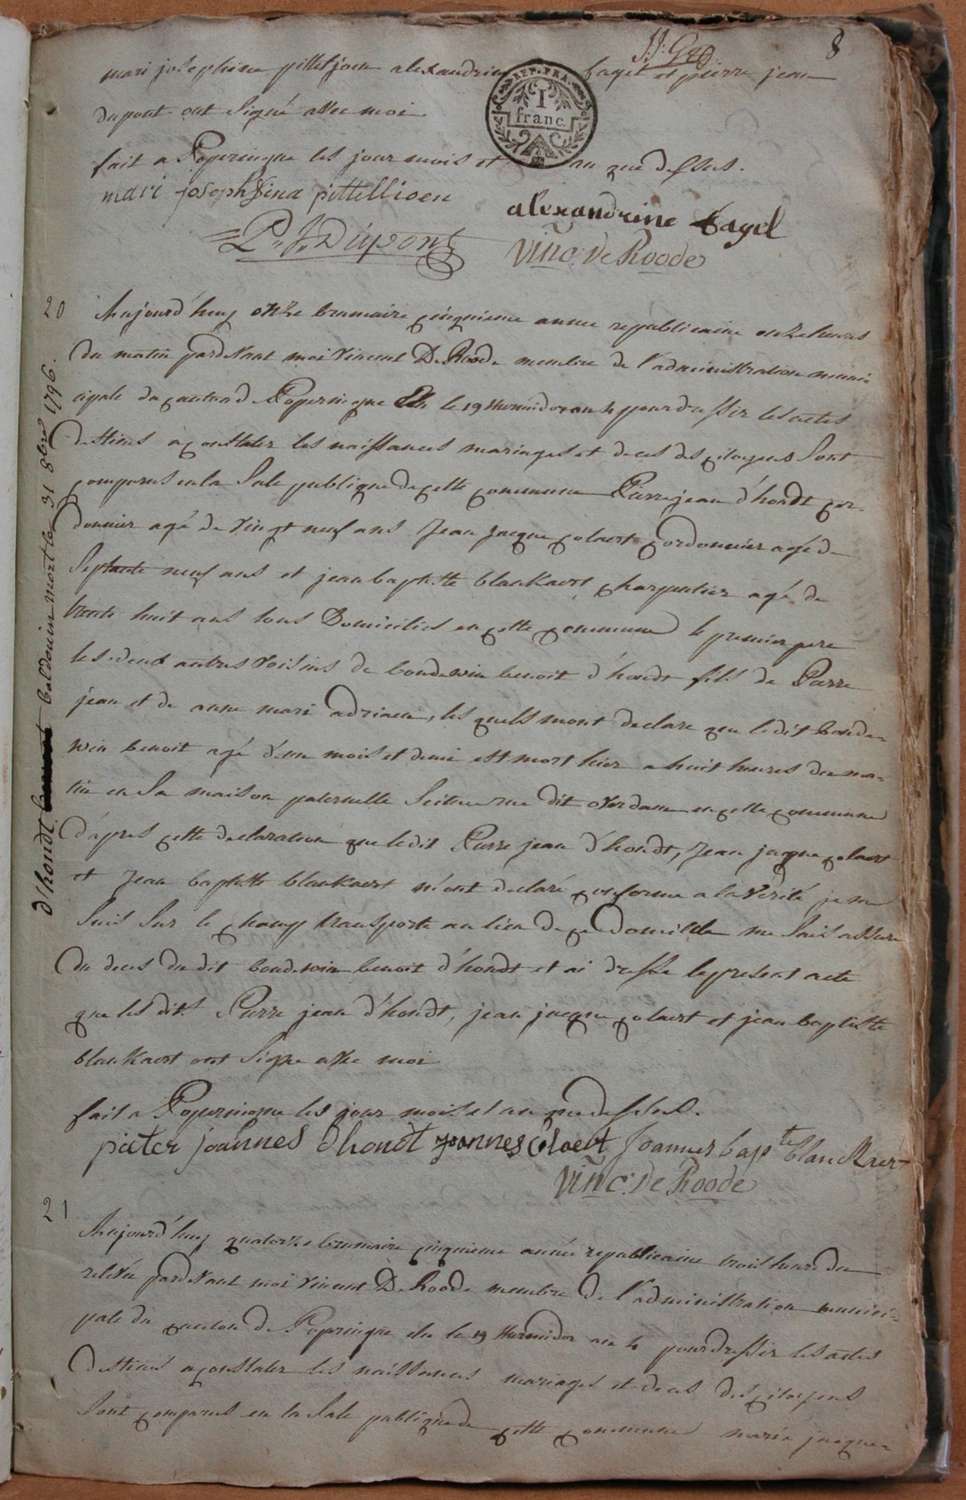 8
mari josephine pittelioen alexandrine fagel et pierre jean
dupont ont signé avec moi
REP. FRA.
1
franc.
fait a Poperingue les jour mois et an que dessus.
mari josephina pittellioen
alexandrine fagel
P. J. Dupont
Vinc. De Roode
20
d'hondt baldouin mort le 31 8bre 1796.
Aujourd'huy onze brumaire cinquieme annee republicaine onze heures
du matin pardevant moi Vincent De Roode membre de l'administration muni
cipale du canton de Poperingue élu le 19 thermidor an 4 pour dresser les actes
destines a constater les naissances mariages et deces des citoyens sont
comparus en la sale publique de cette commune Pierre jean d'hondt cor-
donnier agé de vingt neuf ans Jean jacque colaert cordonnier agé de
septante neuf ans et jean baptiste blankaert charpentier agé de
trente huit ans tous Domicilies en cette commune le premier pere
les deux autres voisins de boudewin benoit d'hondt fils de Pierre
jean et de anne mari adriaen, les quels mont declare que le dit boude-
win benoit agé d'un mois et demi est mort hier a huit heures du ma-
tin en sa maison paternelle scituee rue dit overdam en cette commune
d'apres cette declaration que le dit Pierre jean d'hondt, Jean jacque colaert
et Jean baptiste blankaert m'ont declaré conforme a la verité je me
suis sur le champ transporte au lieu de ce domicille me suis assure
du deces du dit boudewin benoit d'hondt et ai dresse le present acte
que les dits Pierre jean d'hondt, jean jacque colaert et jean baptiste
blankaert ont signe avec moi
fait a Poperingue les jour mois et an que dessus.
pieter joannes dhondt joannes Colaert Joannes bapte blanckaert
Vinc. De Roode
21
Aujourd'huy quatorze brumaire cinquieme année republicaine trois heures de
relevée pardevant moi Vincent De Roode membre de l'administration munici-
pale du canton de Poperingue élu le 19 thermidor an 4 pour dresser les actes
destines a constater les naissances mariages et deces des citoyens
sont comparus en la sale publique de cette commune marie jacque